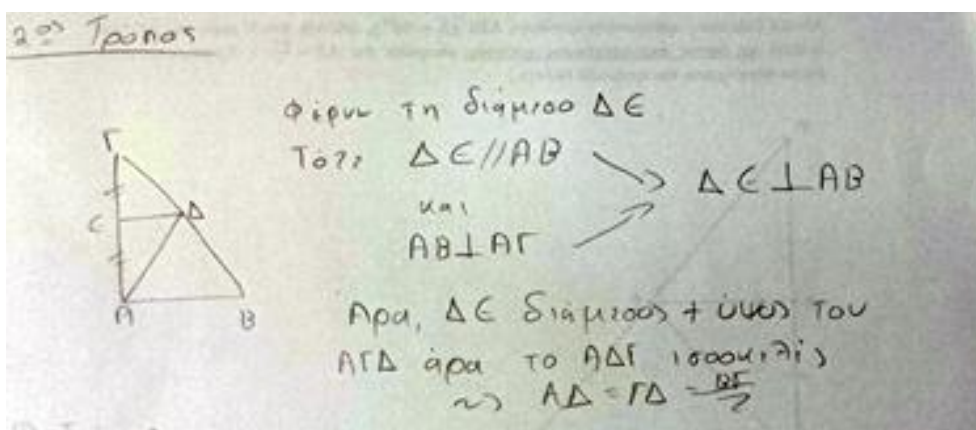 2ος Τρόπος
Φέρνω τη διάμεσο ΔΕ
Τότε ΔΕ//ΑΒ
και
ΑΒ⊥ΑΓ
ΔΕ⊥ΑΒ
Γ
Ε Δ
Α Β
Άρα, ΔΕ διάμεσος + ύψος του
ΑΓΔ άρα το ΑΔΓ ισοσκελές
~> ΑΔ = ΓΔ = ΒΓ/2